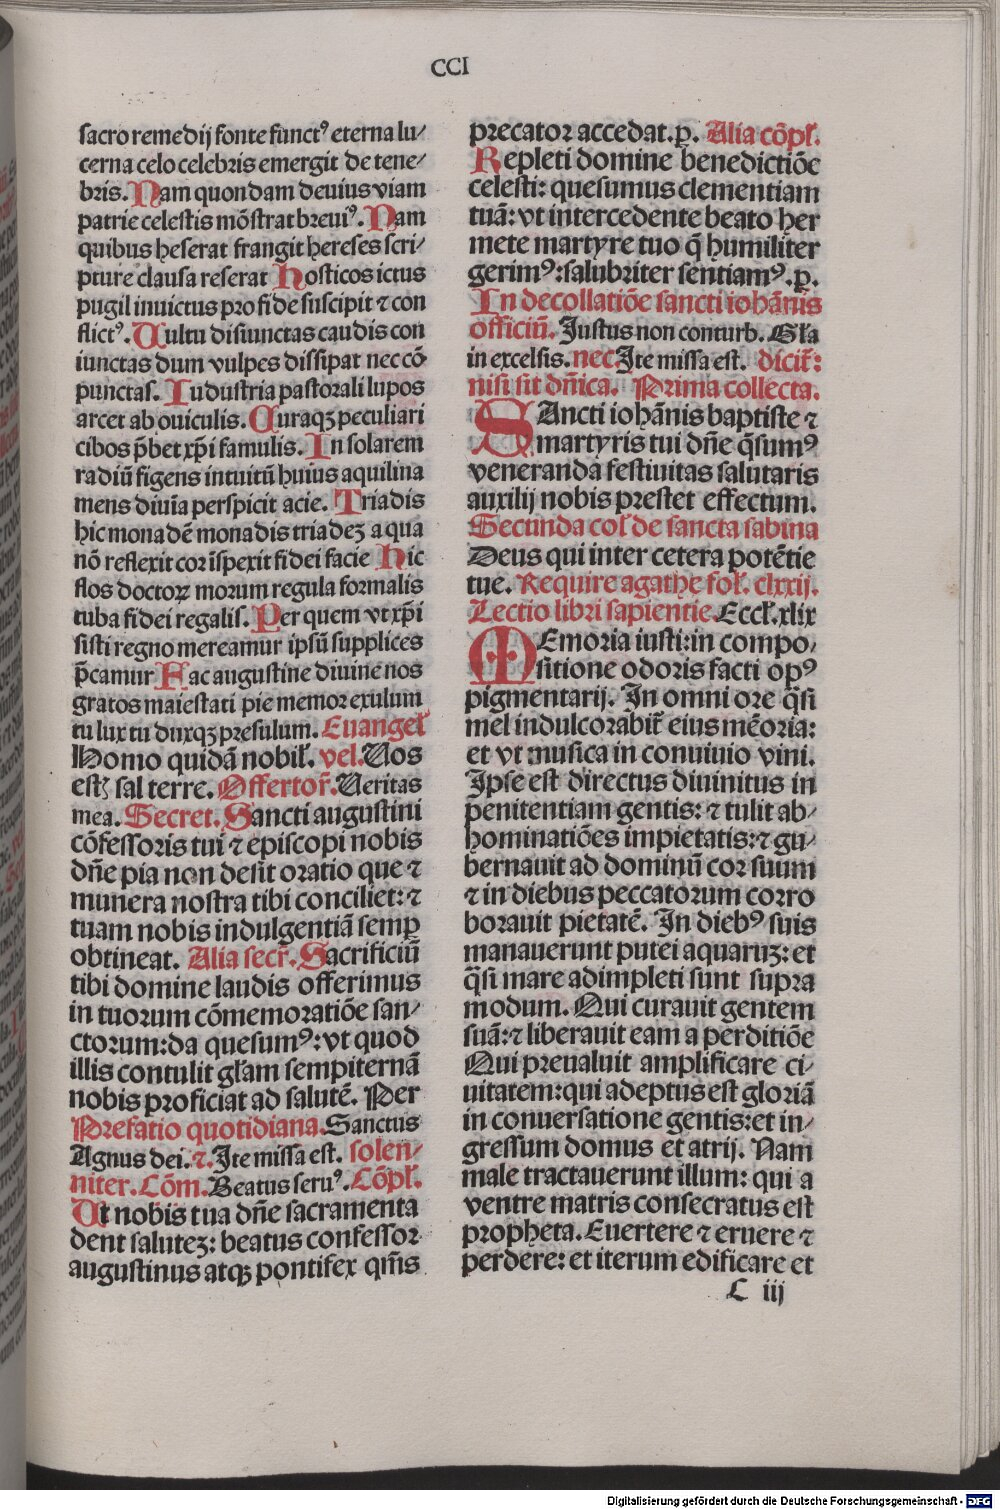 CCI
sacro remedij fonte functꝰ eterna lu⸗
cerna celo celebris emergit de tene⸗
bris. Nam quondam deuius viam
patrie celestis mōstrat breuiꝰ. Nam
quibus heserat frangit hereses scri⸗
pture clausa reserat Hosticos ictus
pugil inuictus pro fide suscipit ⁊ con
flictꝰ. Vultu disiunctas caudis con
iunctas dum vulpes dissipat nec cō
punctas. Iudustria pastorali lupos
arcet ab ouiculis. Curaqꝫ peculiari
cibos p̄bet xp̄i famulis. In solarem
radiū figens intuitū huius aquilina
mens diuīa perspicit acie. Triadis
hic monadē monadis triadeꝫ a qua
nō reflexit cor īspexit fidei facie Hic
flos doctoꝝ morum regula formalis
tuba fidei regalis. Per quem vt xp̄i
sisti regno mereamur ipsū supplices
p̄camur Fac augustine diuine nos
gratos maiestati pie memor exulum
tu lux tu duxqꝫ presulum. Euangel̄
Homo quidā nobil̄. vel. Uos
estꝭ sal terre. Offertor̄. Ueritas
mea. Secret. Sancti augustini
cōfessoris tui ⁊ episcopi nobis
dn̄e pia non desit oratio que ⁊
munera nostra tibi conciliet: ⁊
tuam nobis indulgentiā semꝑ
obtineat. Alia secr̄. Sacrificiū
tibi domine laudis offerimus
in tuorum cōmemoratiōe san⸗
ctorum: da quesumꝰ: vt quod
illis contulit gl̄am sempiternā
nobis proficiat ad salutē. Per
Prefatio quotidiana. Sanctus
Agnus dei. ⁊. Ite missa est. solen⸗
niter. Cōm. Beatus seruꝰ. Cōpl̄.
Ut nobis tua dn̄e sacramenta
dent saluteꝫ: beatus confessor
augustinus atqꝫ pontifex qm̄s
precator accedat. ꝑ. Alia cōpl̄.
Repleti domine benedictiōe
celesti: quesumus clementiam
tuā: vt intercedente beato her
mete martyre tuo q̄ humiliter
gerimꝰ: salubriter sentiamꝰ. ꝑ.
In decollatiōe sancti iohānis
officiū. Justus non conturb. Gl̄a
in excelsis. nec Ite missa est. dicit̄:
nisi sit dn̄ica. Prima collecta.
SAncti iohānis baptiste ⁊
martyris tui dn̄e q̄sumꝰ
veneranda festiuitas salutaris
auxilij nobis prestet effectum.
Secunda col̄ de sancta sabina
Deus qui inter cetera potētie
tue. Require agathe fol̄. clxxij.
Lectio libri sapientie. Eccl̄. xlix
MEmoria iusti: in compo⸗
sitione odoris facti opꝰ
pigmentarij. In omni ore q̄si
mel indulcorabit̄ eius mēoria:
et vt musica in conuiuio vini.
Ipse est directus diuinitus in
penitentiam gentis: ⁊ tulit ab⸗
hominatiōes impietatis: ⁊ gu⸗
bernauit ad dominū cor suum
⁊ in diebus peccatorum corro
borauit pietatē. In diebꝰ suis
manauerunt putei aquaruꝫ: et
q̄si mare adimpleti sunt supra
modum. Qui curauit gentem
suā: ⁊ liberauit eam a perditiōe
Qui preualuit amplificare ci⸗
uitatem: qui adeptus est gloriā
in conuersatione gentis: et in⸗
gressum domus et atrij. Nam
male tractauerunt illum: qui a
ventre matris consecratus est
propheta. Euertere ⁊ eruere ⁊
perdere: et iterum edificare et
C iij
Digitalisierung gefördert durch die Deutsche Forschungsgemeinschaft - DFG